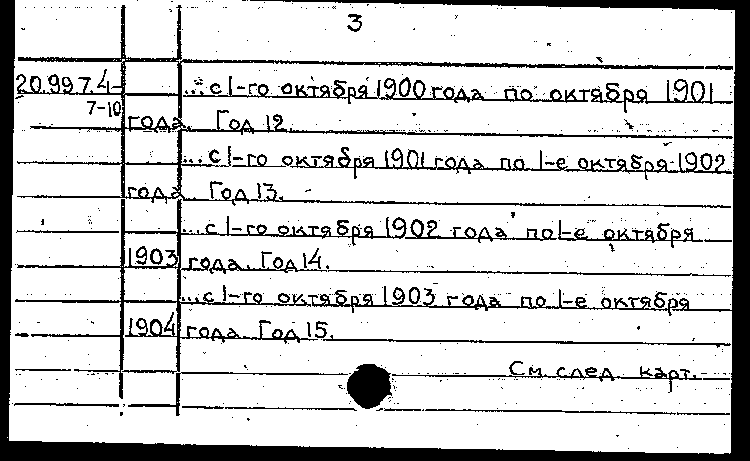 3
20.99 7.4-
7-10
... с 1-го октября 1900 года по октября 1901
года. Год 12.
... с 1-го октября 1901 года по 1-е октября 1902
года. Год 13.
... с 1-го октября 1902 года по 1-е октября
1903 года. Год 14.
... с 1-го октября 1903 года по 1-е октября
1904 года. Год 15.
См. след. карт.